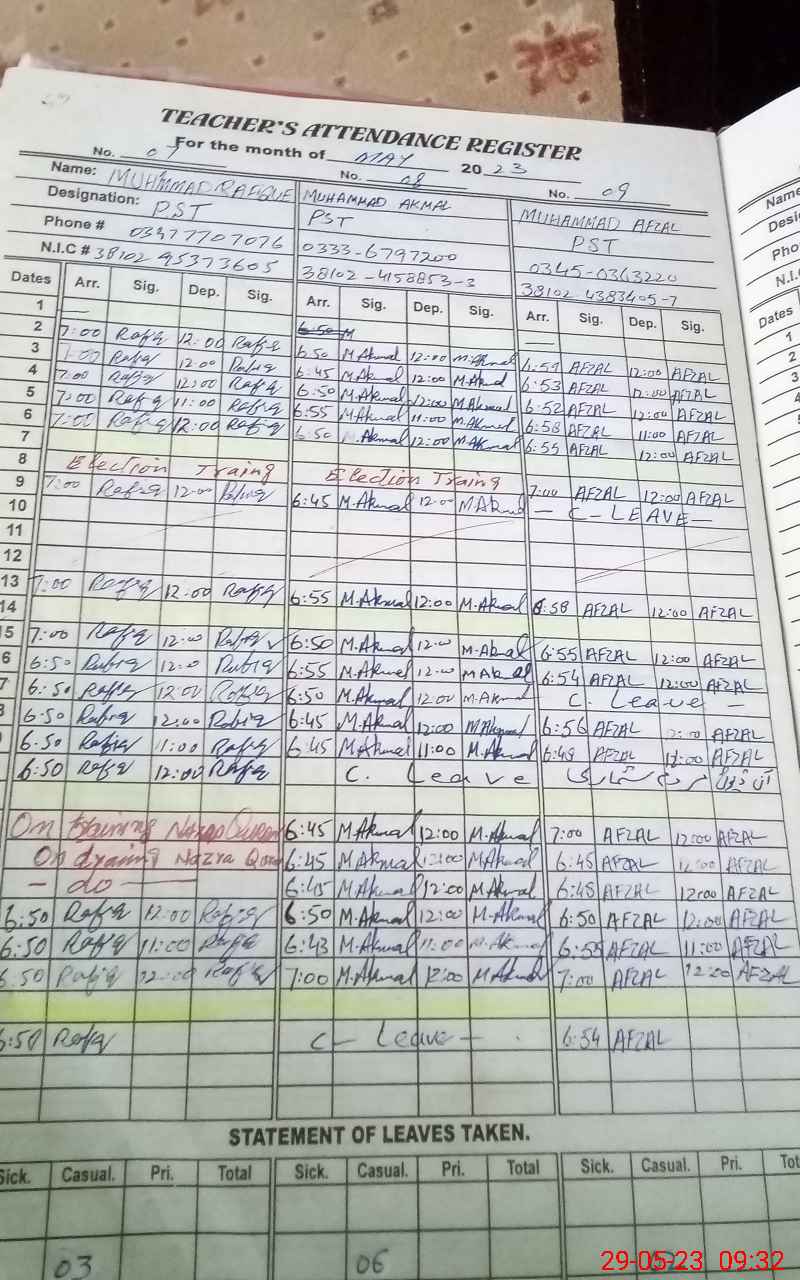 TEACHER'S ATTENDANCE REGISTER
For the month of MAY 2023
No. 07 No. 08 No. 09
Name: MUHMMAD RAFIQUE MUHAMMAD AKMAL MUHAMMAD AFZAL
Designation: PST PST PST
Phone # 03477707076 0333-6797200 0345-0363220
N.I.C # 38102 95373605 38102-4158853-3 38102 4383405-7
Dates Arr. Sig. Dep. Sig. Arr. Sig. Dep. Sig. Arr. Sig. Dep. Sig.
1 —
2 7:00 Rafiq 12:00 Rafiq 6:50 M —
3 7:00 Rafiq 12:00 Rafiq 6:50 M.Akmal 12:00 M.Akmal 6:51 AFZAL 12:00 AFZAL
4 7:00 Rafiq 12:00 Rafiq 6:45 M.Akmal 12:00 M.Akmal 6:53 AFZAL 12:00 AFZAL
5 7:00 Rafiq 11:00 Rafiq 6:50 M.Akmal 12:00 M.Akmal 6:52 AFZAL 12:00 AFZAL
6 7:00 Rafiq 12:00 Rafiq 6:55 M.Akmal 11:00 M.Akmal 6:58 AFZAL 11:00 AFZAL
7 6:50 M.Akmal 12:00 M.Akmal 6:55 AFZAL 12:00 AFZAL
8 Election Traing Election Traing
9 7:00 Rafiq 12:00 Rafiq 7:00 AFZAL 12:00 AFZAL
10 6:45 M.Akmal 12:00 M.Akmal — C-LEAVE —
11
12
13 7:00 Rafiq 12:00 Rafiq
14 6:55 M.Akmal 12:00 M.Akmal 6:58 AFZAL 12:00 AFZAL
15 7:00 Rafiq 12:00 Rafiq 6:50 M.Akmal 12:00 M.Akmal 6:55 AFZAL 12:00 AFZAL
6 6:50 Rafiq 12:00 Rafiq 6:55 M.Akmal 12:00 M.Akmal 6:54 AFZAL 12:00 AFZAL
7 6:50 Rafiq 12:00 Rafiq 6:50 M.Akmal 12:00 M.Akmal C. Leave —
6:50 Rafiq 12:00 Rafiq 6:45 M.Akmal 12:00 M.Akmal 6:56 AFZAL AFZAL
6:50 Rafiq 11:00 Rafiq 6:45 M.Akmal 11:00 M.Akmal 6:48 AFZAL 11:00 AFZAL
6:50 Rafiq 12:00 Rafiq C. Leave آن ڈیوٹی مردم شماری
On training Nazra Quran 6:45 M.Akmal 12:00 M.Akmal 7:00 AFZAL 12:00 AFZAL
On training Nazra Quran 6:45 M.Akmal 12:00 M.Akmal 6:45 AFZAL 12:00 AFZAL
— do — 6:45 M.Akmal 12:00 M.Akmal 6:48 AFZAL 12:00 AFZAL
6:50 Rafiq 12:00 Rafiq 6:50 M.Akmal 12:00 M.Akmal 6:50 AFZAL 12:00 AFZAL
6:50 Rafiq 11:00 Rafiq 6:43 M.Akmal 11:00 M.Akmal 6:55 AFZAL 11:00 AFZAL
6:50 Rafiq 12:00 Rafiq 7:00 M.Akmal 12:00 M.Akmal 7:00 AFZAL 12:00 AFZAL
6:50 Rafiq C- Leave — 6:54 AFZAL
STATEMENT OF LEAVES TAKEN.
Sick. Casual. Pri. Total Sick. Casual. Pri. Total Sick. Casual. Pri. Tot
03 06
Name
Desi
Pho
N.I.
Dates
1
2
3
4
29-05-23 09:32